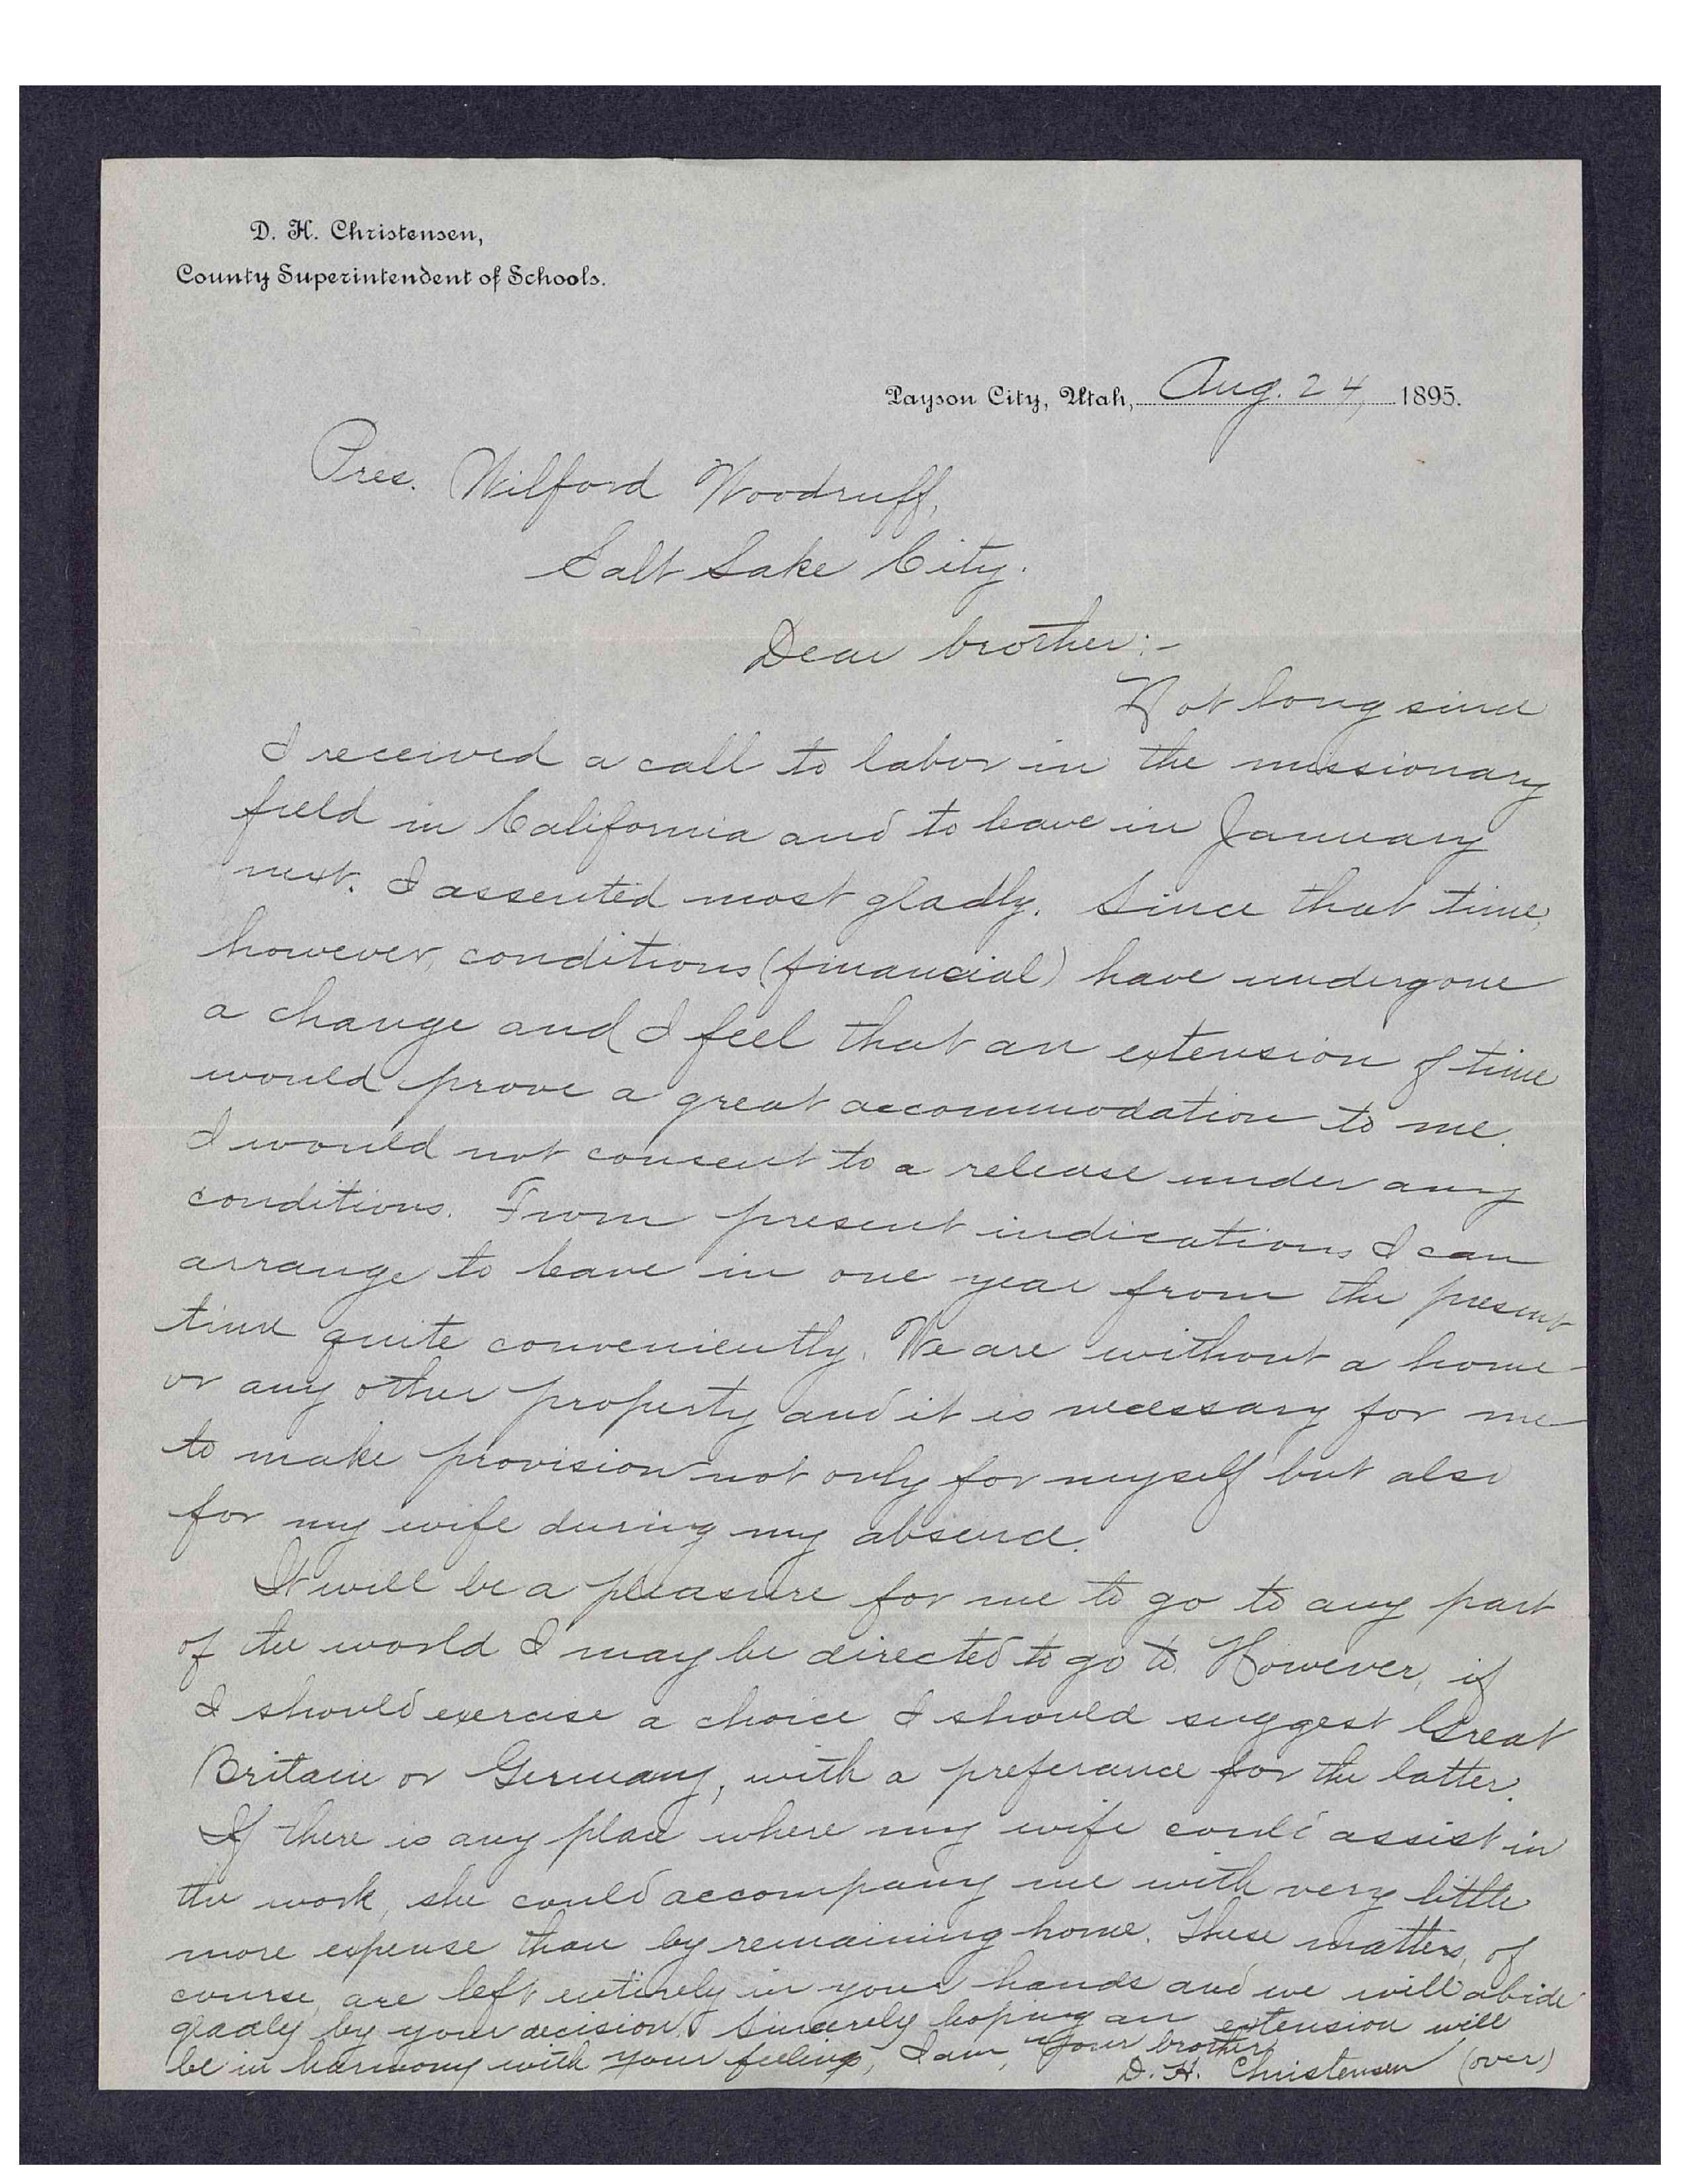 D. H. Christensen,
County Superintendent of Schools.
Payson City, Utah, Aug. 24, 1895.
Pres. Wilford Woodruff,
Salt Lake City.
Dear brother:-
Not long since
I received a call to labor in the missionary
field in California and to leave in January
next. I assented most gladly. Since that time,
however, conditions (financial) have undergone
a change and I feel that an extension of time
would prove a great accommodation to me.
I would not consent to a release under any
conditions. From present indications I can
arrange to leave in one year from the present
time quite conveniently. We are without a home
or any other property and it is necessary for me
to make provision not only for myself but also
for my wife during my absence.
It will be a pleasure for me to go to any part
of the world I may be directed to go to. However, if
I should exercise a choice I should suggest Great
Britain or Germany, with a preferance for the latter.
If there is any place where my wife could assist in
the work, she could accompany me with very little
more expense than by remaining home. These matters, of
course, are left entirely in your hands and we will abide
gladly by your decision. Sincerely hoping an extension will
be in harmony with your feelings, I am, Your brother,
D. H. Christensen (over)